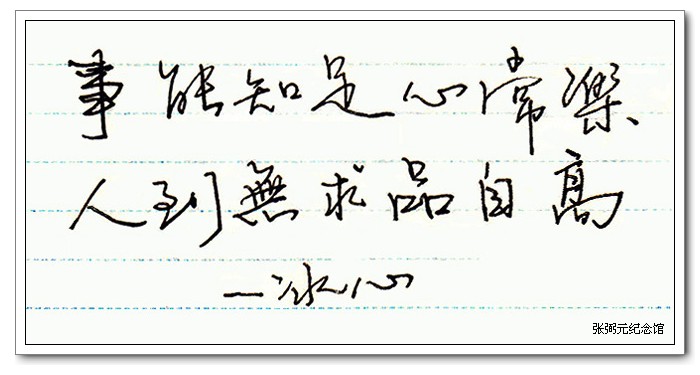 事能知足心常樂
人到無求品自高
—冰心
张弼元纪念馆